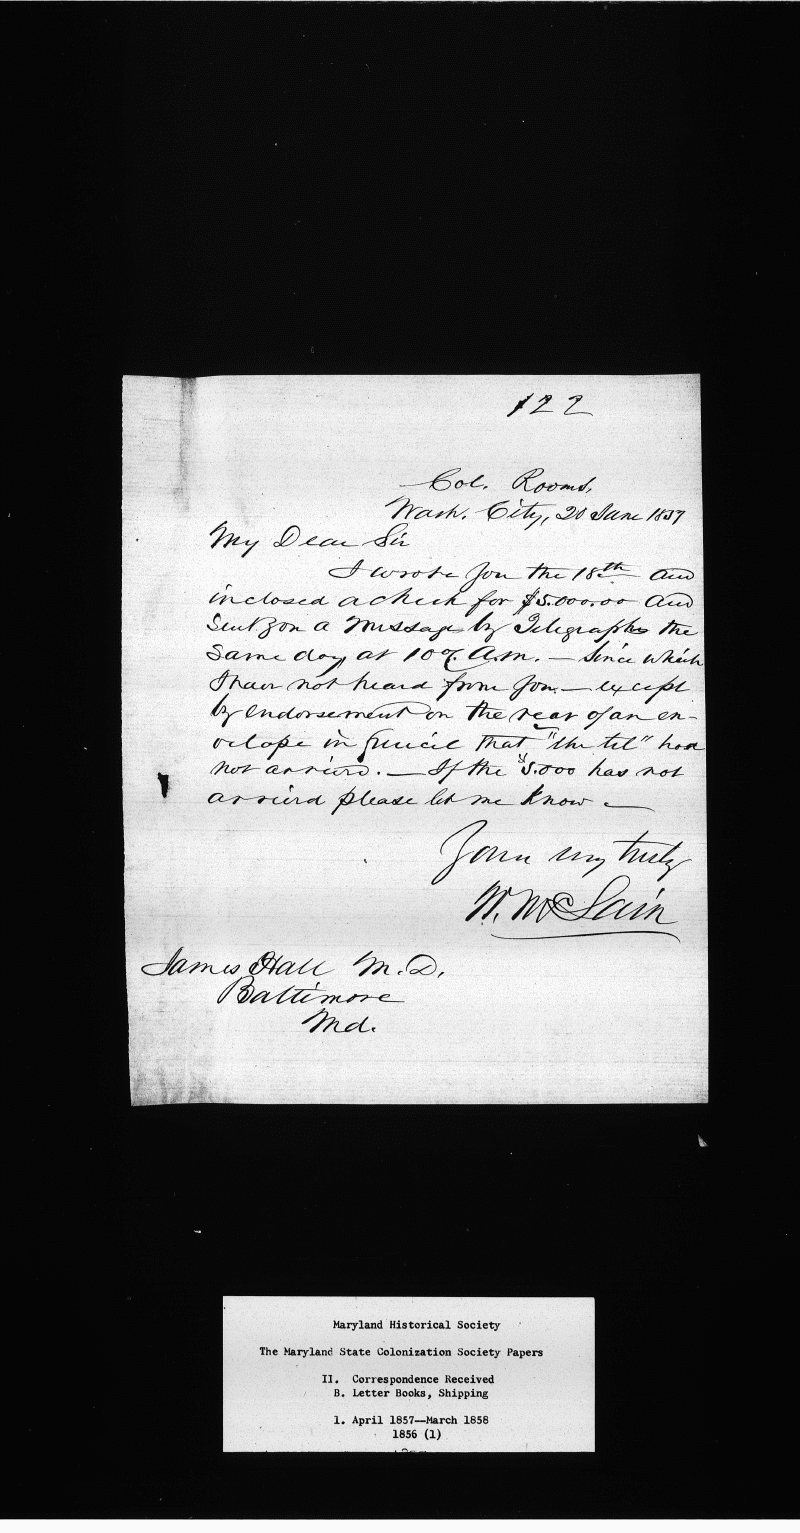 122
Col. Rooms,
Wash. City, 20 June 1857
My Dear Sir
I wrote you the 18th and
inclosed a check for $5.000.00 and
sent you a message by Telegraph the
same day at 10 A.m. — Since which
I have not heard from you — except
by endorsement on the rear of an en-
velope in pencil that "the tel" had
not arrived. — If the $5.000 has not
arrived please let me know —
Yours very truly
W. McLain
James Hall M.D.
Baltimore
Md.
Maryland Historical Society
The Maryland State Colonization Society Papers
II. Correspondence Received
B. Letter Books, Shipping
1. April 1857--March 1858
1856 (1)